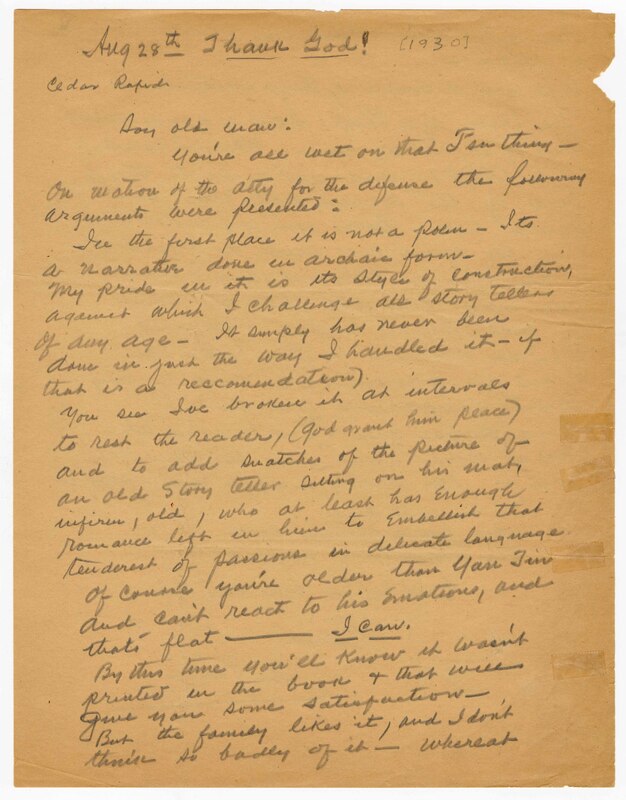 Aug 28th Thank God! [1930]
Cedar Rapids
Say old man:
You're all wet on that T'sin thing —
On motion of the atty for the defense the following
arguments were presented:
In the first place it is not a poem - Its
a narrative done in archaic form -
My pride in it is its style of construction,
against which I challenge all story tellers
of any age - It simply has never been
done in just the way I handled it - if
that is a reccomendation).
You see I've broken it at intervals
to rest the reader, (God grant him peace)
and to add snatches of the picture of
an old Story teller sitting on his mat,
infirm, old, who at least has enough
romance left in him to Embellish that
tenderest of passions in delicate language
Of course you're older than Yan T'sin
and can't react to his Emotions, and
that's flat — I can.
By this time you'll know it wasn't
printed in the book & that will
give you some satisfaction —
But the family likes it, and I don't
think so badly of it — whereat